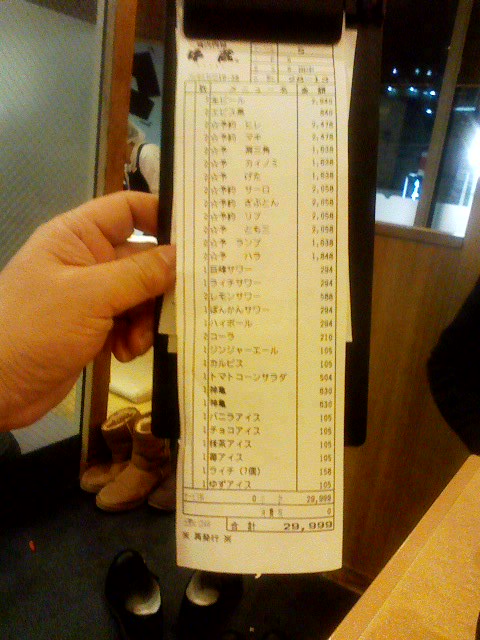 数 メニュー名 金額
生ビール
エビス黒 840
2 ☆予約 ヒレ 3,478
2 ☆予約 マキ 3,478
2 ☆予 肩三角 1,638
2 ☆予 カイノミ 1,638
2 ☆予 げた 1,638
2 ☆予約 サーロ 2,058
2 ☆予約 ざぶとん 2,058
2 ☆予約 リブ 2,058
2 ☆予 とも三 2,058
2 ☆予 ランプ 1,638
2 ☆予 ハラ 1,848
1 巨峰サワー 294
1 ライチサワー 294
2 レモンサワー 588
1 ぽんかんサワー 294
1 ハイボール 294
2 コーラ 210
1 ジンジャーエール 105
1 カルピス 105
1 トマトコーンサラダ 504
1 神亀 630
1 神亀 630
1 バニラアイス 105
1 チョコアイス 105
1 抹茶アイス 105
1 苺アイス 105
1 ライチ (7個) 158
1 ゆずアイス 105
29,999
0
合計 29,999
※ 再発行 ※